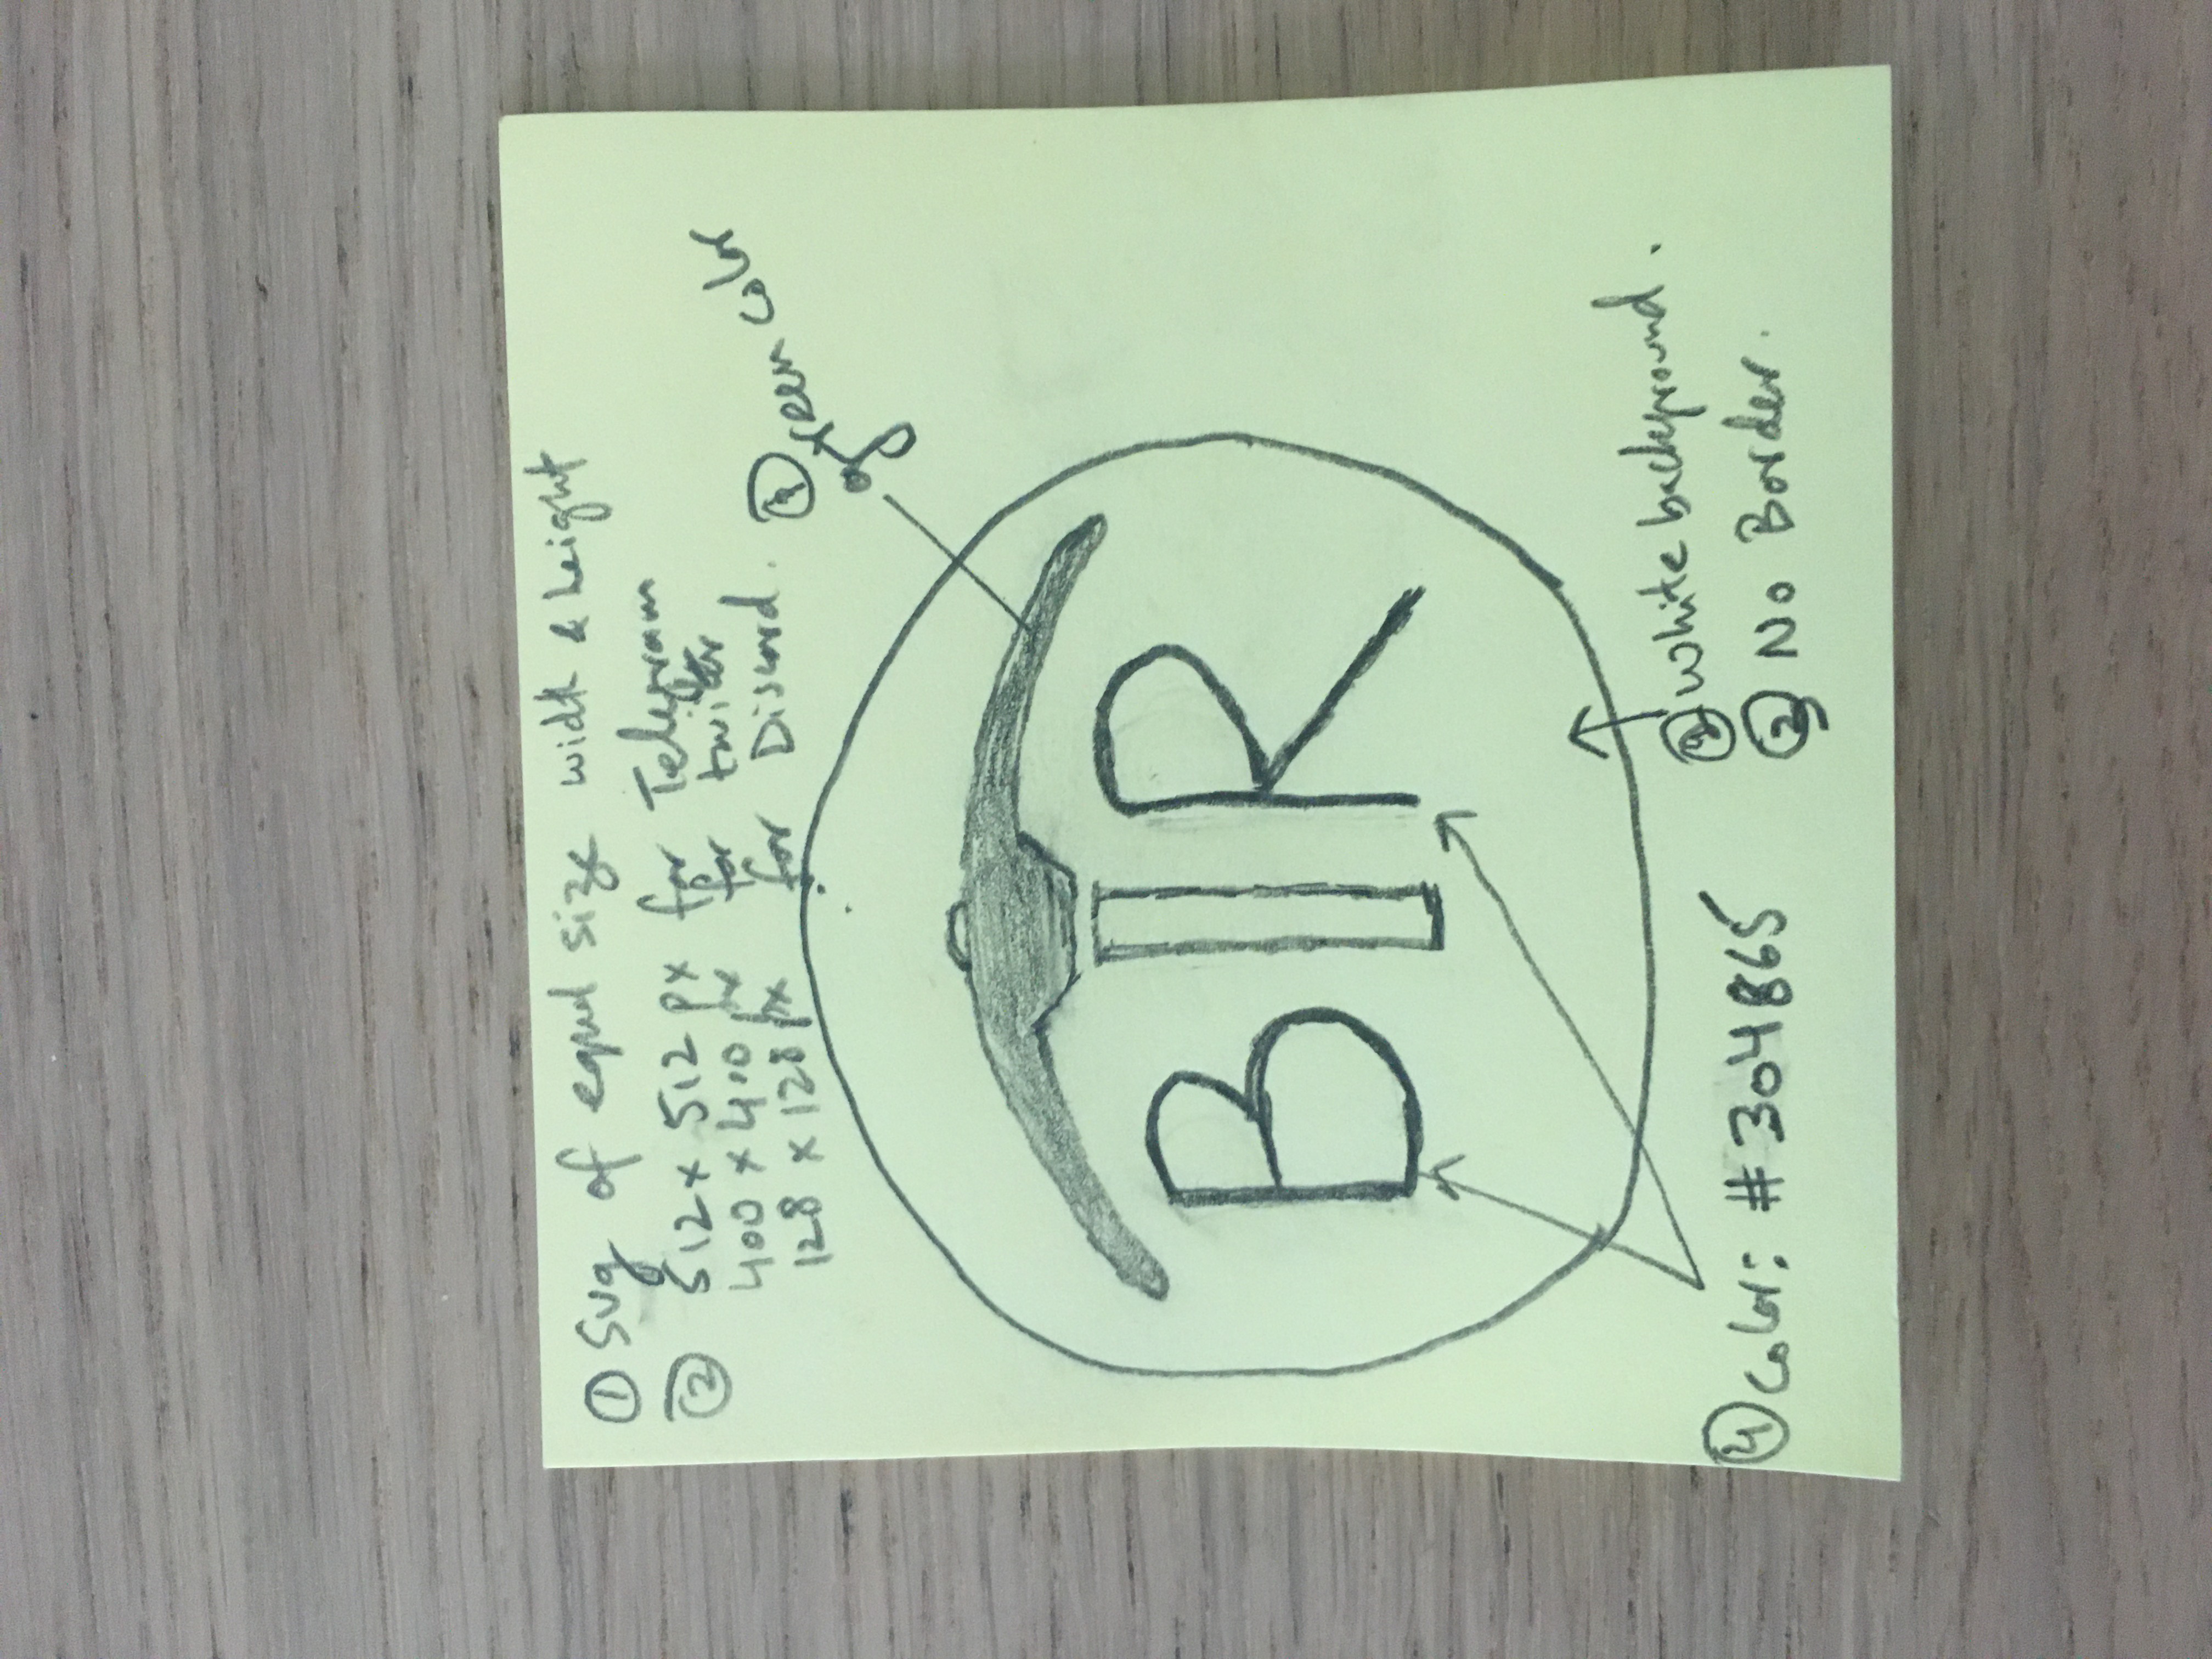 ① Svg of equal size width & height
② 512 x 512 px for Telegram
400 x 400 px for twitter
128 x 128 px for Discord.
green color
B T R
④ Color: #304865
White background.
③ No Border.